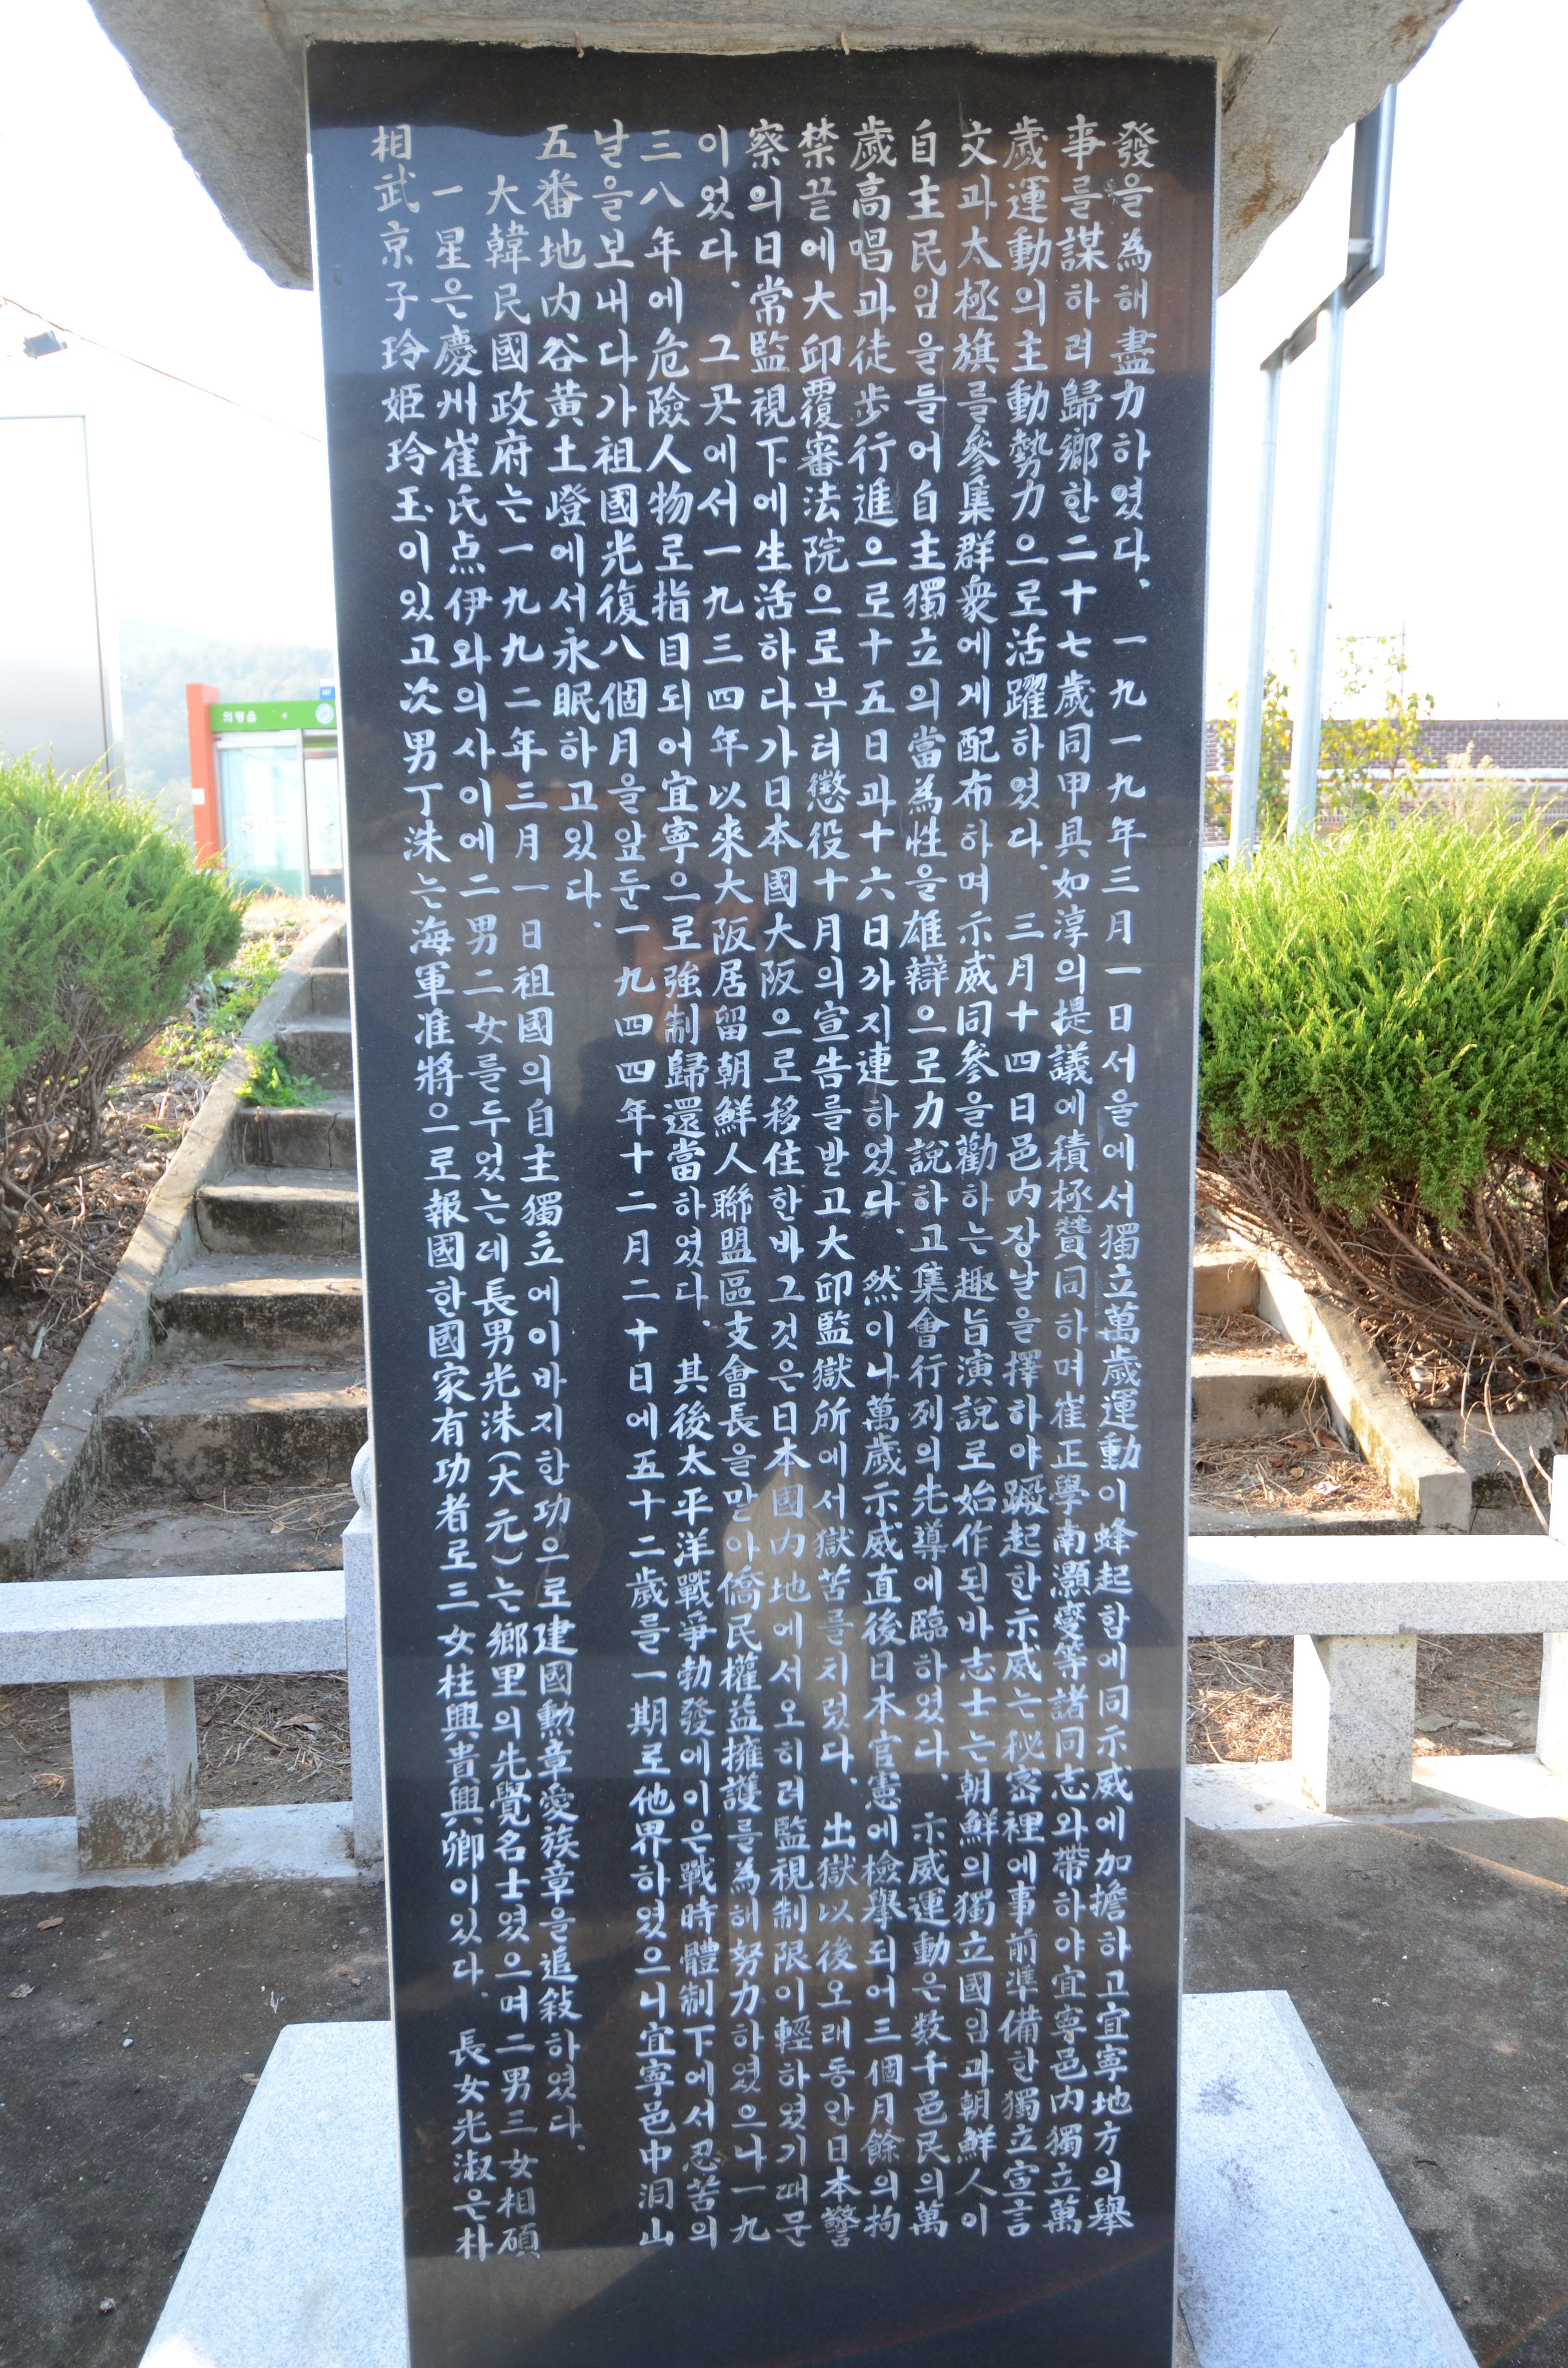 發을為해盡力하였다. 一九一九年三月一日서울에서獨立萬歲運動이蜂起함에同示威에加擔하고宜寧地方의擧
事를謀하려歸鄕한二十七歲同甲具如淳의提議에積極贊同하며崔正學南灝燮等諸同志와帶하야宜寧邑內獨立萬
歲運動의主動勢力으로活躍하였다. 三月十四日邑內장날을擇하야蹶起한示威는秘密裡에事前準備한獨立宣言
文과太極旗를參集群衆에게配布하며示威同參을勸하는趣旨演說로始作된바志士는朝鮮의獨立國임과朝鮮人이
自主民임을들어自主獨立의當為性을雄辯으로力說하고集會行列의先導에臨하였다. 示威運動은数千邑民의萬
歲高唱과徒步行進으로十五日과十六日까지連하였다. 然이나萬歲示威直後日本官憲에檢擧되어三個月餘의拘
禁끝에大邱覆審法院으로부터懲役十月의宣告를받고大邱監獄所에서獄苦를치렀다. 出獄以後오래동안日本警
察의日常監視下에生活하다가日本國大阪으로移住한바그것은日本國內地에서오히려監視制限이輕하였기때문
이었다. 그곳에서一九三四年以来大阪居留朝鮮人聯盟區支會長을맡아僑民權益擁護를為해努力하였으나一九
三八年에危險人物로指目되어宜寧으로強制歸還當하였다. 其後太平洋戰爭勃發에이은戰時體制下에서忍苦의
날을보내다가祖國光復八個月을앞둔一九四四年十二月二十日에五十二歲를一期로他界하였으니宜寧邑中洞山
五番地內谷黃土嶝에서永眠하고있다.
大韓民國政府는一九九二年三月一日祖國의自主獨立에이바지한功으로建國勲章愛族章을追敍하였다.
一星은慶州崔氏点伊와의사이에二男二女를두었는데長男光洙(大元)는鄉里의先覺名士였으며二男三女相碩
相武京子玲姬玲玉이있고次男丁洙는海軍准將으로報國한國家有功者로三女柱興貴興卿이있다. 長女光淑은朴
의령읍